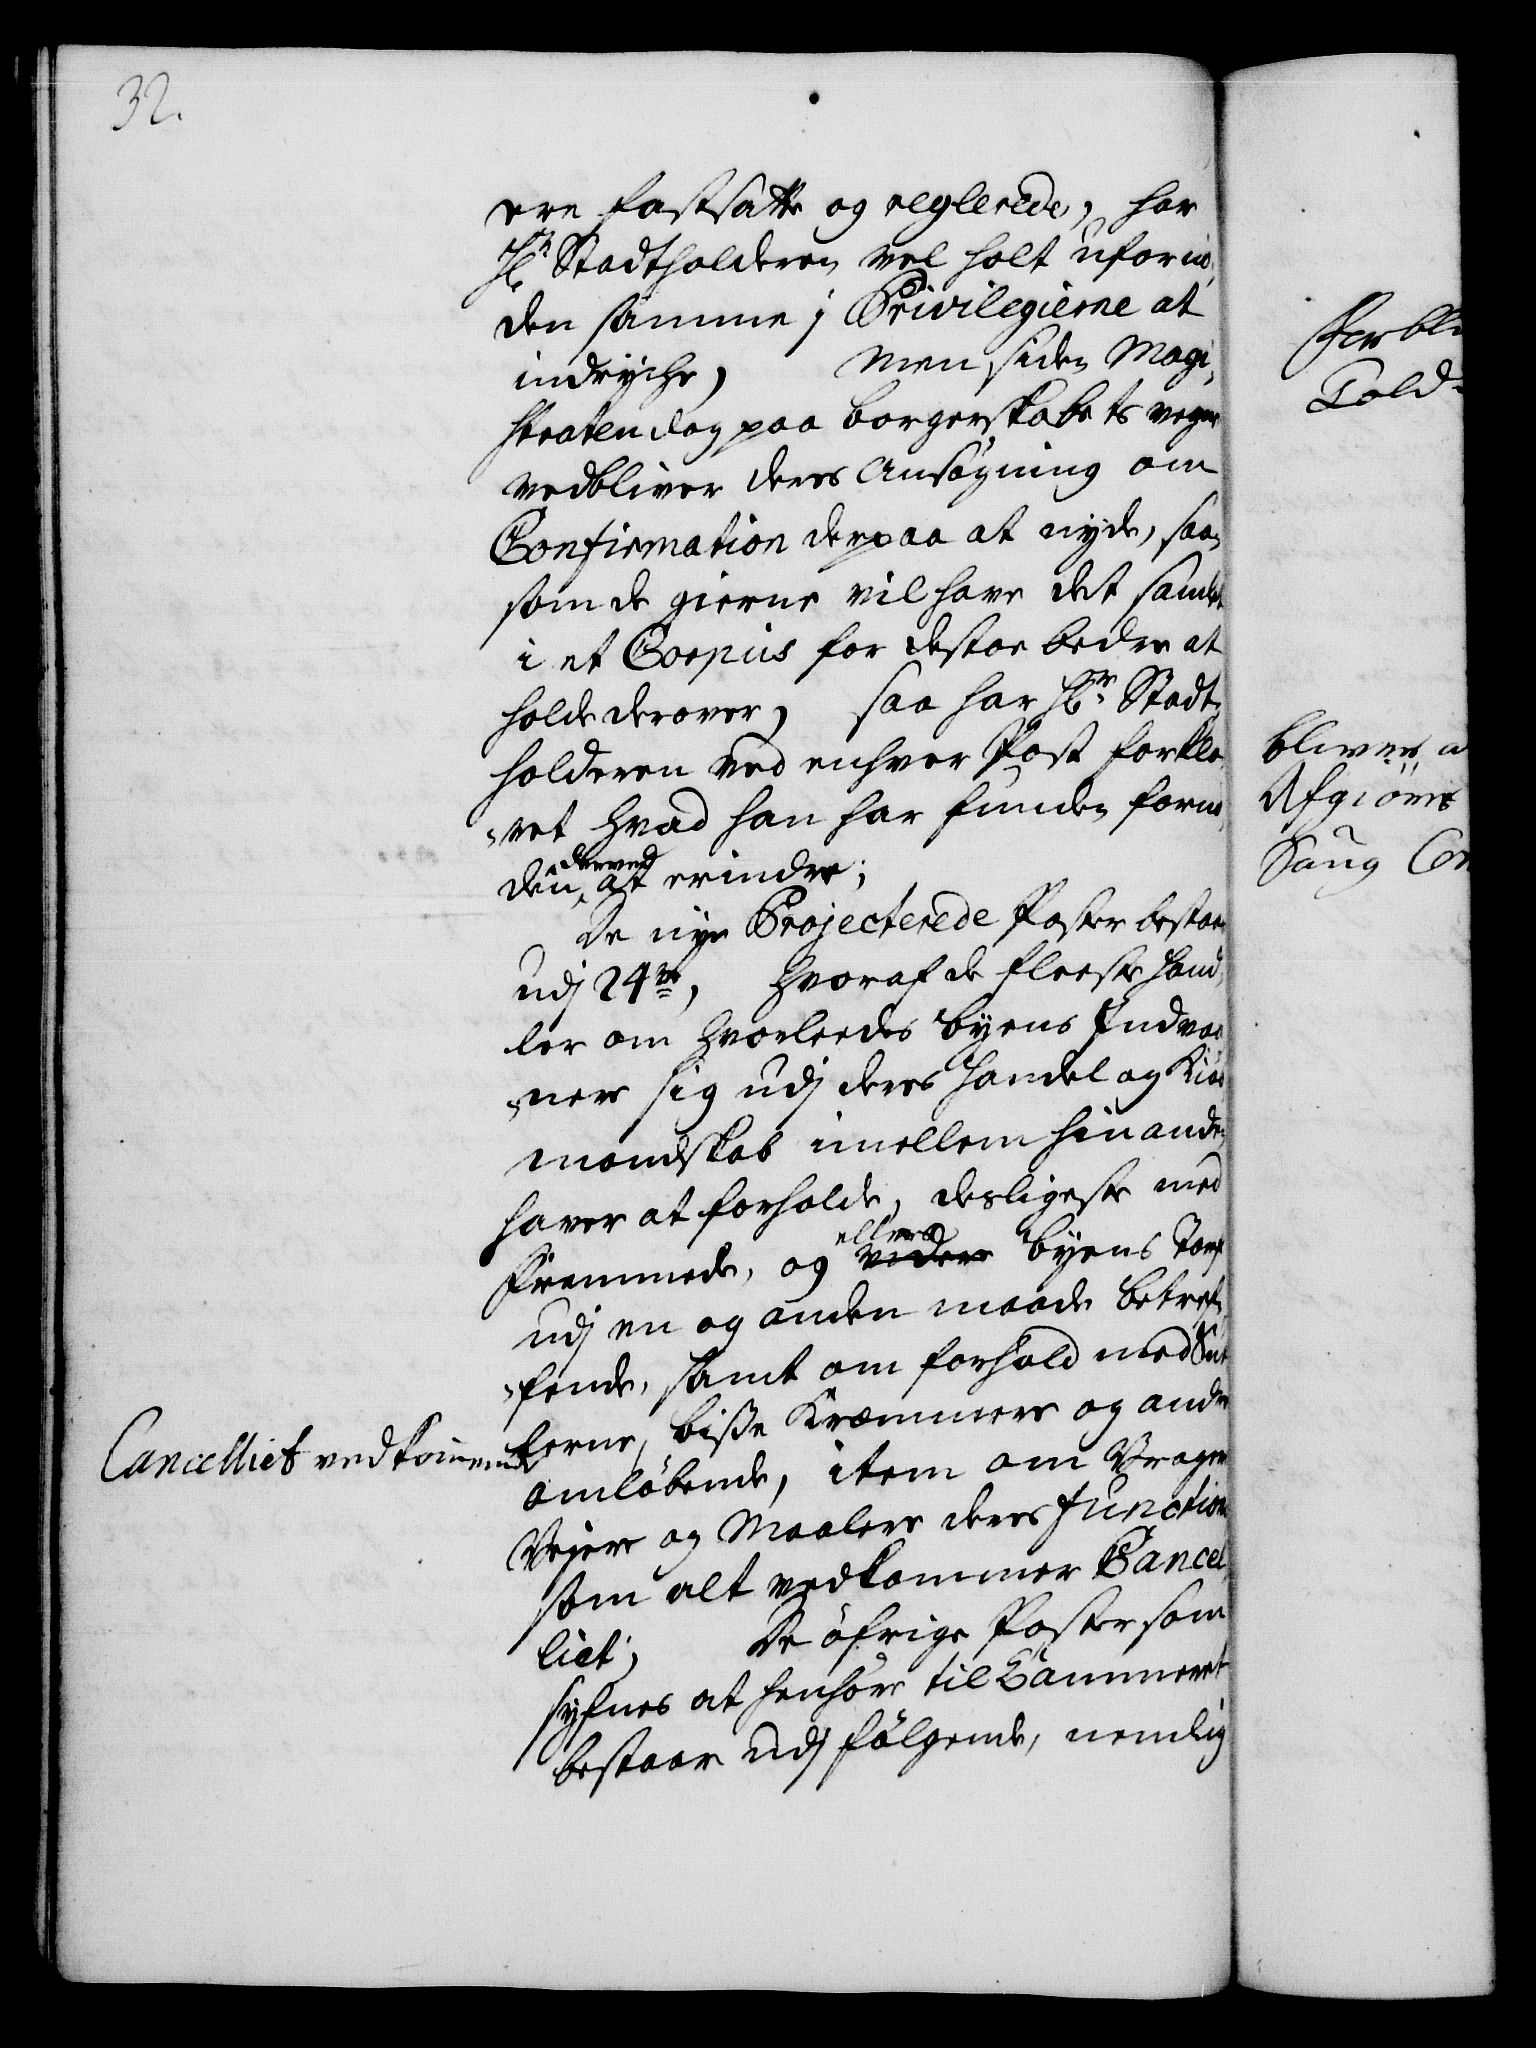 32.
ere fastsatte og reglerede, har
Hr Stadtholderen vel holt ufornö,
den samme i Privilegierne at
indrycke, men siden Magi,
straten dog paa borgerskabets vegne
vedbliver deres Ansøgning om
Confirmation derpaa at nyde, saa,
som de gierne vil have det samlet
i et Corpus for destoe bedre at
holde derover, saa har Hr Stadt,
holderen ved enhver Post forkla,
ret hvad han har funden forni,
den derved at erindre;
De nye Projecterede Poster bestaar
udj 24re, hvoraf de fleeste hand,
ler om hvorleedes byens Indvaa
ner sig udj deres Handel og Kiøb
mandskab imellem hinanden
haver at forholde, desligeste med
Fremmede, og ellers videre byens Tarf
udj en og anden maade betref,
fende, samt om forhold med
ferne, bisse Kræmmere og andre
omløbende, item om Vragere
Vejere og Maalere deres Function
som alt vedkommer Cancel,
liet; De öfrige Poster som
syfnes at henhöre til Cammeret
bestaar udj fölgende, nemlig
Cancelliet vedkommende
Told
bliver
Afgiöres
Saug